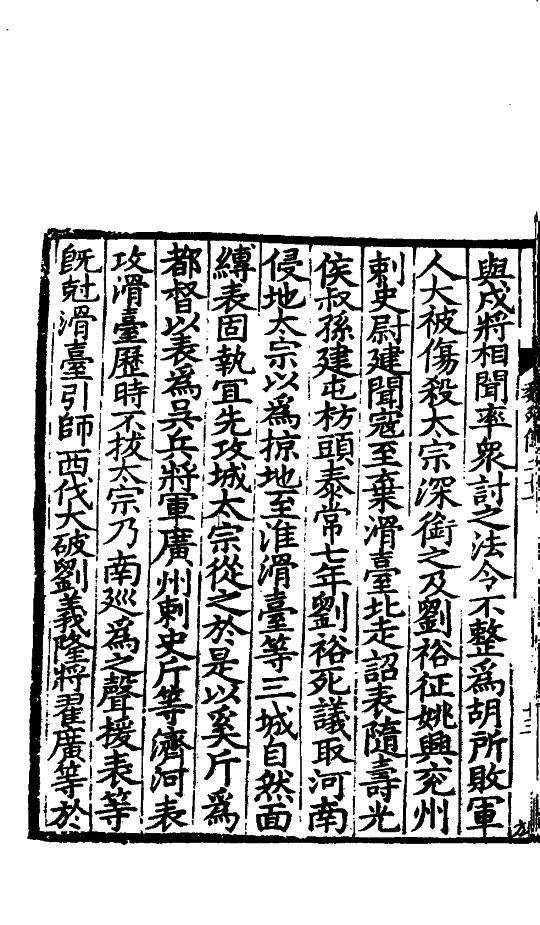 與戍將相聞率衆討之法令不整爲胡所敗軍
人大被傷殺太宗深銜之及劉裕征姚興兖州
剌史尉建聞寇至棄滑臺北走詔表隨壽光
侯叔孫建屯枋頭泰常七年劉裕死議取河南
侵地太宗以爲掠地至淮滑臺等三城自然面
縳表固執冝先攻城太宗從之於是以奚斤爲
都督以表爲吳兵將軍廣州剌史斤等濟河表
攻滑臺歷時不拔太宗乃南廵爲之聲援表等
旣尅滑臺引師西伐大破劉義隆將翟廣等於